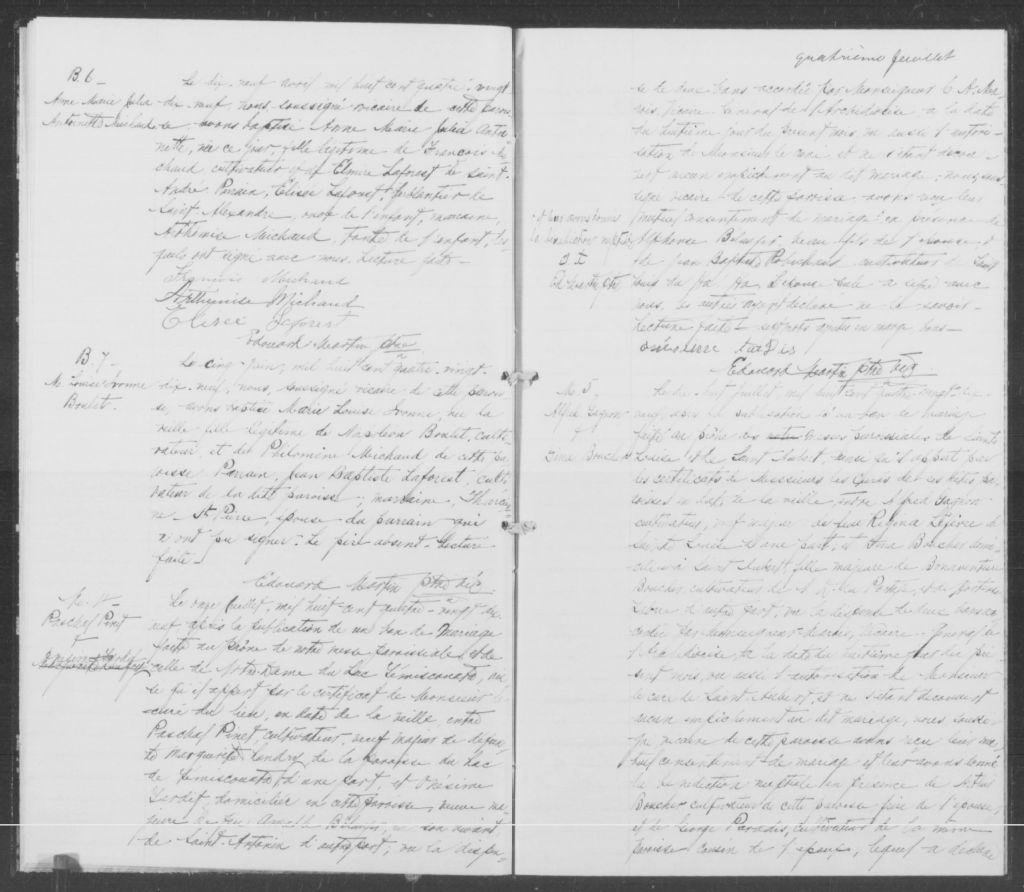 B. 6 –
Anne Marie Julia
Antoinette Michaud
Le dix-neuf avril mil huit cent quatre-vingt
dix-neuf nous soussigné vicaire de cette parois-
se avons baptisé Anne Marie Julia Antoi-
nette, née ce jour, fille légitime de François Mi-
chaud cultivateur et d' Elmire Laforest de Saint-
André. Parrain, Elisée Laforest,
Saint-Alexandre, oncle de l'enfant, marraine,
Arthémise Michaud, tante de l'enfant, les-
quels ont signé avec nous. Lecture faite –
François Michaud
Arthémise Michaud
Elisée Laforest
Edouard Martin Ptre
B. 7 –
M. Louise Ivonne
Boulet.
Le cinq juin, mil huit cent quatre-vingt-
dix-neuf, nous, soussigné vicaire de cette parois-
se, avons baptisé Marie Louise Ivonne, née la
veille fille légitime de Napoléon Boulet, culti-
vateur, et de Philomène Michaud de cette pa-
roisse. Parrain, Jean Baptiste Laforest, culti-
vateur de la dite paroisse; marraine,
St. Pierre, épouse du parrain qui
n'ont pu signer. Le père absent. Lecture
faite –
Edouard Martin Ptre Vic.
M. 4 –
Paschal Pinet
+
Onésime Tardif
Le onze juillet, mil huit cent quatre-vingt dix-
neuf après la publication de un ban de mariage
faite au prône de notre messe paroissiale et de
celle de Notre-Dame du Lac Témiscouata, ain-
si qu'il appert par le certificat de Monsieur le
curé du lieu, en date de la veille, entre
Paschal Pinet cultivateur, veuf majeur de défun-
te Marguerite Landry de la paroisse du Lac
de Témiscouata d'une part, et Onésime
Tardif, domiciliée en cette paroisse, veuve ma-
jeure de feu Bélanger, en son vivant
de Saint-Antonin d'autre part, vu la dispen-
quatrième feuillet
se de deux bans accordée par Monseigneur C. A. Ma-
rois, Vicaire Général de l'Archidiocèse, à la date
du huitième jour du présent mois, vu aussi l'autori-
sation de Monsieur le curé, et ne s'étant décou-
vert aucun empêchement au dit mariage, nous sous-
signé vicaire de cette paroisse avons reçu leur
mutuel consentement de mariage en présence de
Alphonse Bélanger, beau-fils de l'épouse, et
de Jean Baptiste cultivateur de Saint
avec
nous, les autres ayant déclaré ne le savoir.
Lecture faite –
et leur avons donné
la bénédiction nuptiale
Onésime Tardif
Edouard Martin Ptre Vic
M. 5
Alfred Gagnon
+
Anna Boucher
Le dix-huit juillet mil huit cent quatre-vingt-dix-
neuf après la publication d'un ban de mariage
faite au prône des messes paroissiales de Sainte
Louise et de Saint Aubert, ainsi qu'il appert par
les certificats de Messieurs les Curés de ces dites pa-
roisses en date de la veille, entre Alfred Gagnon
cultivateur, veuf majeur de feue Regina Lefebvre de
Sainte Louise d'une part; et Anna Boucher domi-
ciliée à Saint Aubert, fille majeure de Bonaventure
Boucher cultivateur de
d'autre part, vu la dispense de deux bans ac-
cordée par Monseigneur Marois, Vicaire-Général de
l'Archidiocèse, à la date du huitième jour du pré-
sent mois, vu aussi l'autorisation de Monsieur
le curé de Saint Aubert, et ne s'étant découvert
aucun empêchement au dit mariage, nous soussi-
gné vicaire de cette paroisse avons reçu leur mu-
tuel consentement de mariage et leur avons donné
la bénédiction nuptiale en présence de
Boucher cultivateur de cette paroisse père de l'épouse,
et de George Paradis, cultivateur de la même
paroisse cousin de l'époux, lequel a déclaré